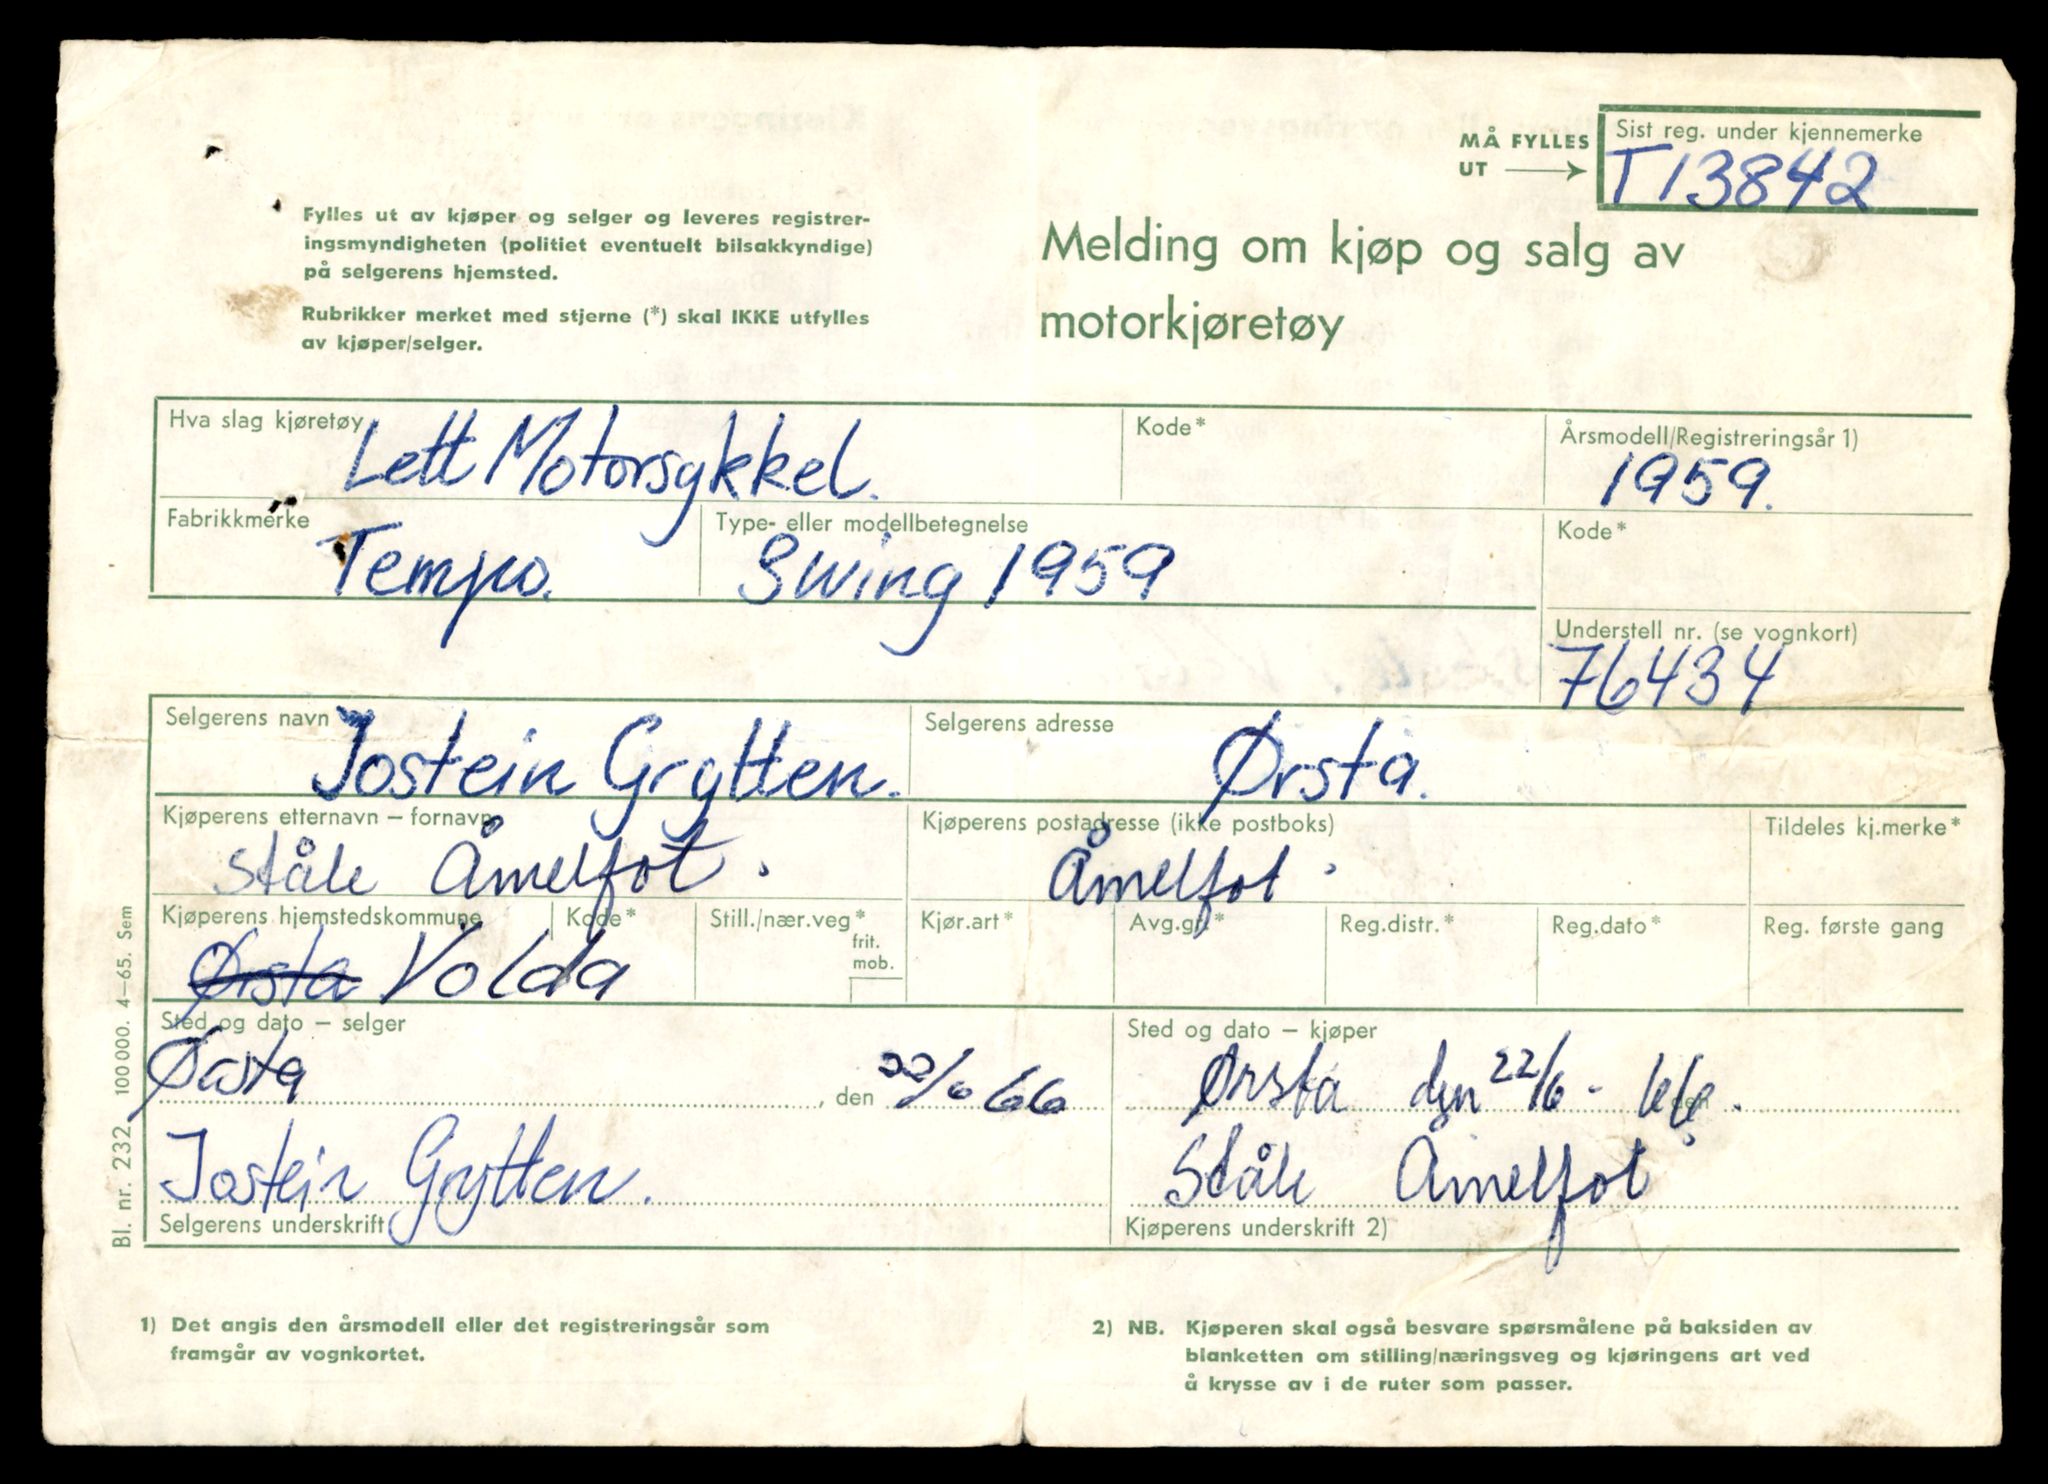 MÅ FYLLES
UT
Sist reg. under kjennemerke
T13842
Fylles ut av kjøper og selger og leveres registrer-
ingsmyndigheten (politiet eventuelt bilsakkyndige)
på selgerens hjemsted.
Rubrikker merket med stjerne (*) skal IKKE utfylles
av kjøper/selger.
Melding om kjøp og salg av
motorkjøretøy
Hva slag kjøretøy
Lett Motorsykkel.
Kode*
Årsmodell/Registreringsår 1)
1959.
Fabrikkmerke
Tempo.
Type- eller modellbetegnelse
Swing 1959
Kode*
Understell nr. (se vognkort)
76434
Selgerens navn
Jostein Grytten.
Selgerens adresse
Ørsta.
Kjøperens etternavn – fornavn
Ståle Åmelfot.
Kjøperens postadresse (ikke postboks)
Åmelfot.
Tildeles kj.merke*
Kjøperens hjemstedskommune
Ørsta Volda
Kode*
Still./nær.veg*
frit.
mob.
Kjør.art*
Avg.gr.*
Reg.distr.*
Reg.dato*
Reg. første gang
Sted og dato – selger
Ørsta, den 22/6 66
Jostein Grytten.
Selgerens underskrift
Sted og dato – kjøper
Ørsta den 22/6 - 66.
Ståle Åmelfot
Kjøperens underskrift 2)
Bl. nr. 232 100000. 4–65. Sem
1) Det angis den årsmodell eller det registreringsår som
framgår av vognkortet.
2) NB. Kjøperen skal også besvare spørsmålene på baksiden av
blanketten om stilling/næringsveg og kjøringens art ved
å krysse av i de ruter som passer.